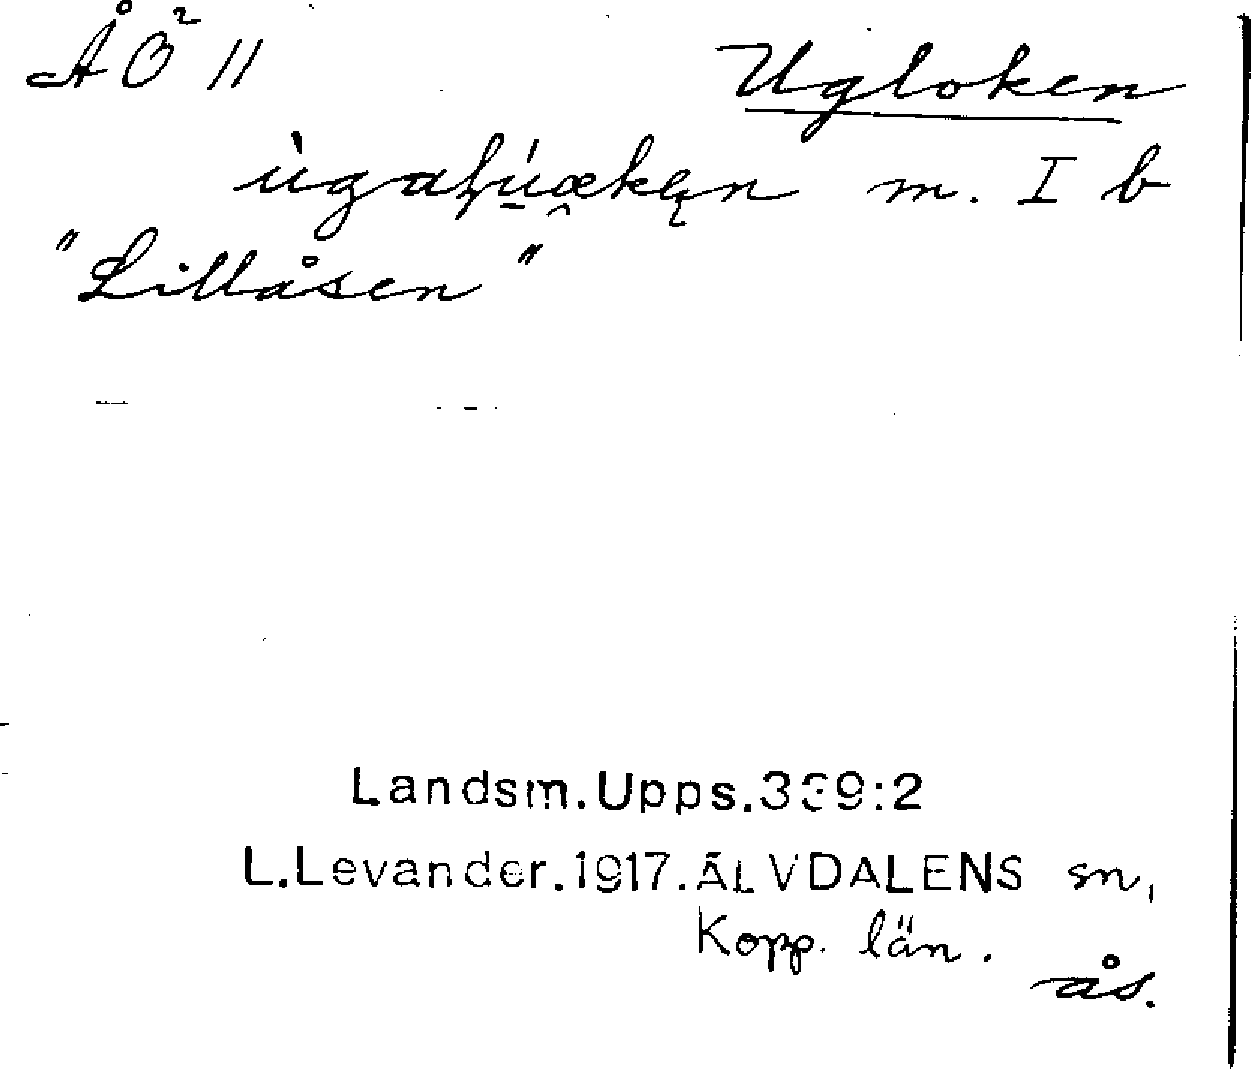 ÅÖ² 11 Ugloken
m. I b
"Lillåsen"
Landsm.Upps.339:2
L.Levander.1917.ÄLVDALENS sn,
Kopp. län.
ås.